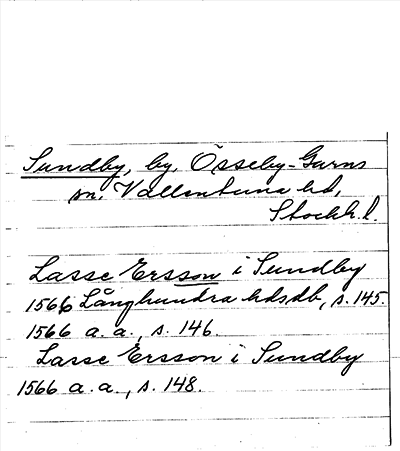 Sundby, by, Össeby-Garns
sn. Vallentuna hd,
Stockh. l.
Lasse Ersson i Sundby
1566 Långhundra hdsdb, s. 145.
1566 a. a., s. 146.
Lasse Ersson i Sundby
1566 a. a., s. 148.